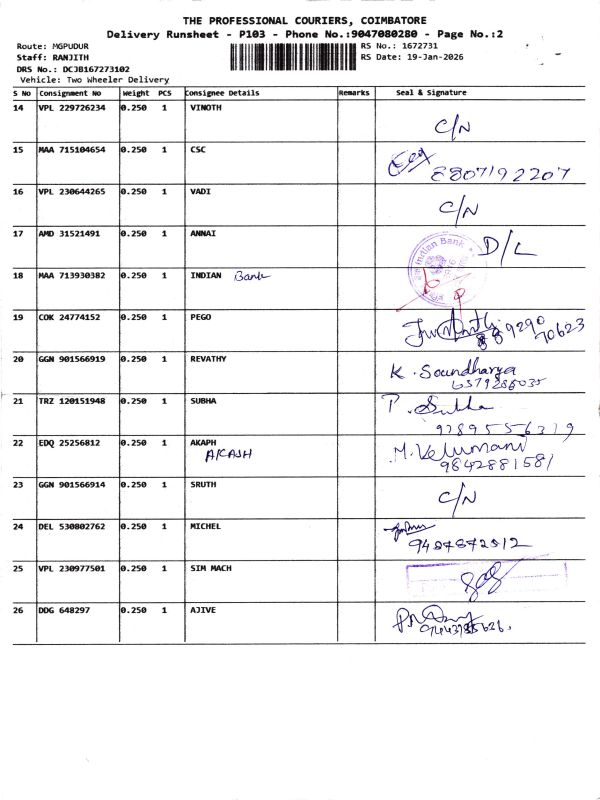 THE PROFESSIONAL COURIERS, COIMBATORE
Delivery Runsheet - P103 - Phone No.:9047080280 - Page No.:2
Route: MGPUDUR
RS No.: 1672731
Staff: RANJITH
RS Date: 19-Jan-2026
DRS No.: DCJB167273102
Vehicle: Two Wheeler Delivery
S No Consignment No Weight PCS Consignee Details Remarks Seal & Signature
14 VPL 229726234 0.250 1 VINOTH
C/N
15 MAA 715104654 0.250 1 CSC
8807192207
16 VPL 230644265 0.250 1 VADI
C/N
17 AMD 31521491 0.250 1 ANNAI
D/L
Indian Bank
18 MAA 713930382 0.250 1 INDIAN Bank
19 COK 24774152 0.250 1 PEGO
20 GGN 901566919 0.250 1 REVATHY
K. Soundharya
6379286035
21 TRZ 120151948 0.250 1 SUBHA
P. Subha
9789556319
22 EDQ 25256812 0.250 1 AKAPH
AKASH
M. Velumani
9842881581
23 GGN 901566914 0.250 1 SRUTH
C/N
24 DEL 530802762 0.250 1 MICHEL
9487872812
25 VPL 230977501 0.250 1 SIM MACH
26 DDG 648297 0.250 1 AJIVE